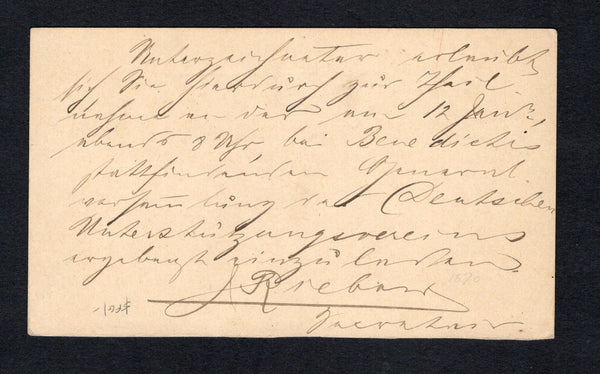 Unterzeichneter erlaubt
sich Sie hierdurch zur Theil
nahme an der am 12 Janr.,
abends 8 Uhr bei Benedictis
stattfindenden General
versammlung des Deutschen
Unterstützungsvereins
ergebenst einzuladen.
Secretair.
1890